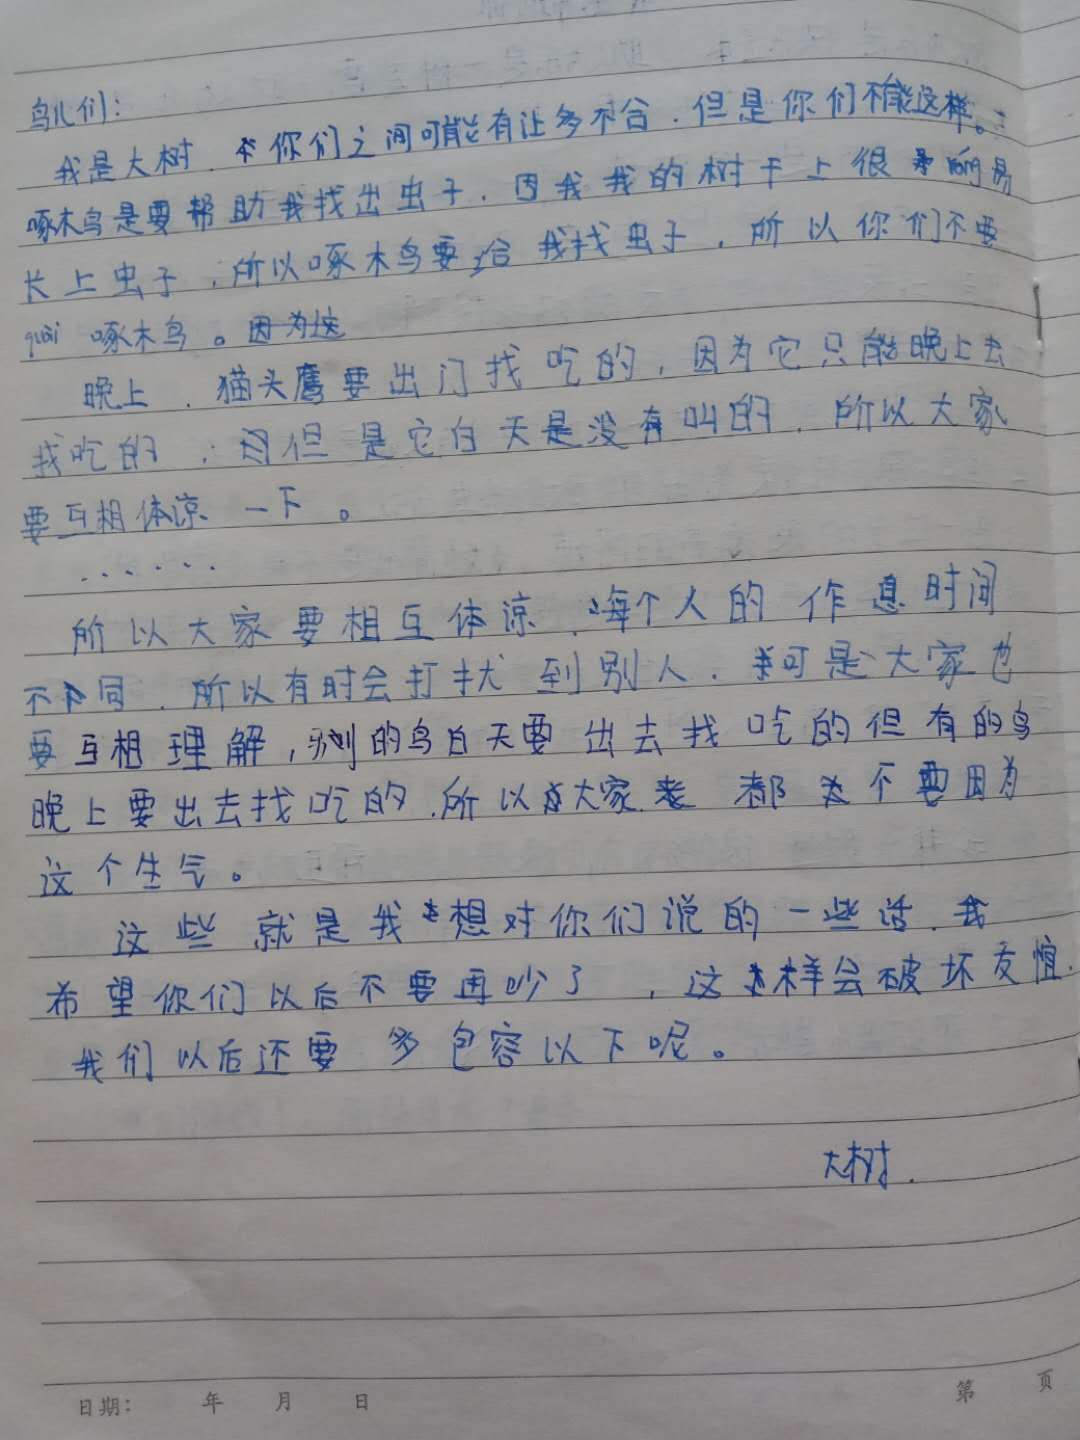 鸟儿们：
我是大树，你们之间可能有让多不合，但是你们不能这样。
啄木鸟是要帮助我找出虫子，因我我的树干上很 易
长上虫子，所以啄木鸟要给我找虫子，所以你们不要
guài 啄木鸟。因为这
晚上，猫头鹰要出门找吃的，因为它只能晚上去
找吃的，但是它白天是没有叫的，所以大家
要互相体谅一下。
......
所以大家要相互体谅，每个人的作息时间
不同，所以有时会打扰到别人，可是大家也
要互相理解，别的鸟白天要出去找吃的但有的鸟
晚上要出去找吃的，所以大家都不要因为
这个生气。
这些就是我想对你们说的一些话，我
希望你们以后不要再吵了，这样会破坏友谊，
我们以后还要多包容以下呢。
大树.
日期： 年 月 日 第 页